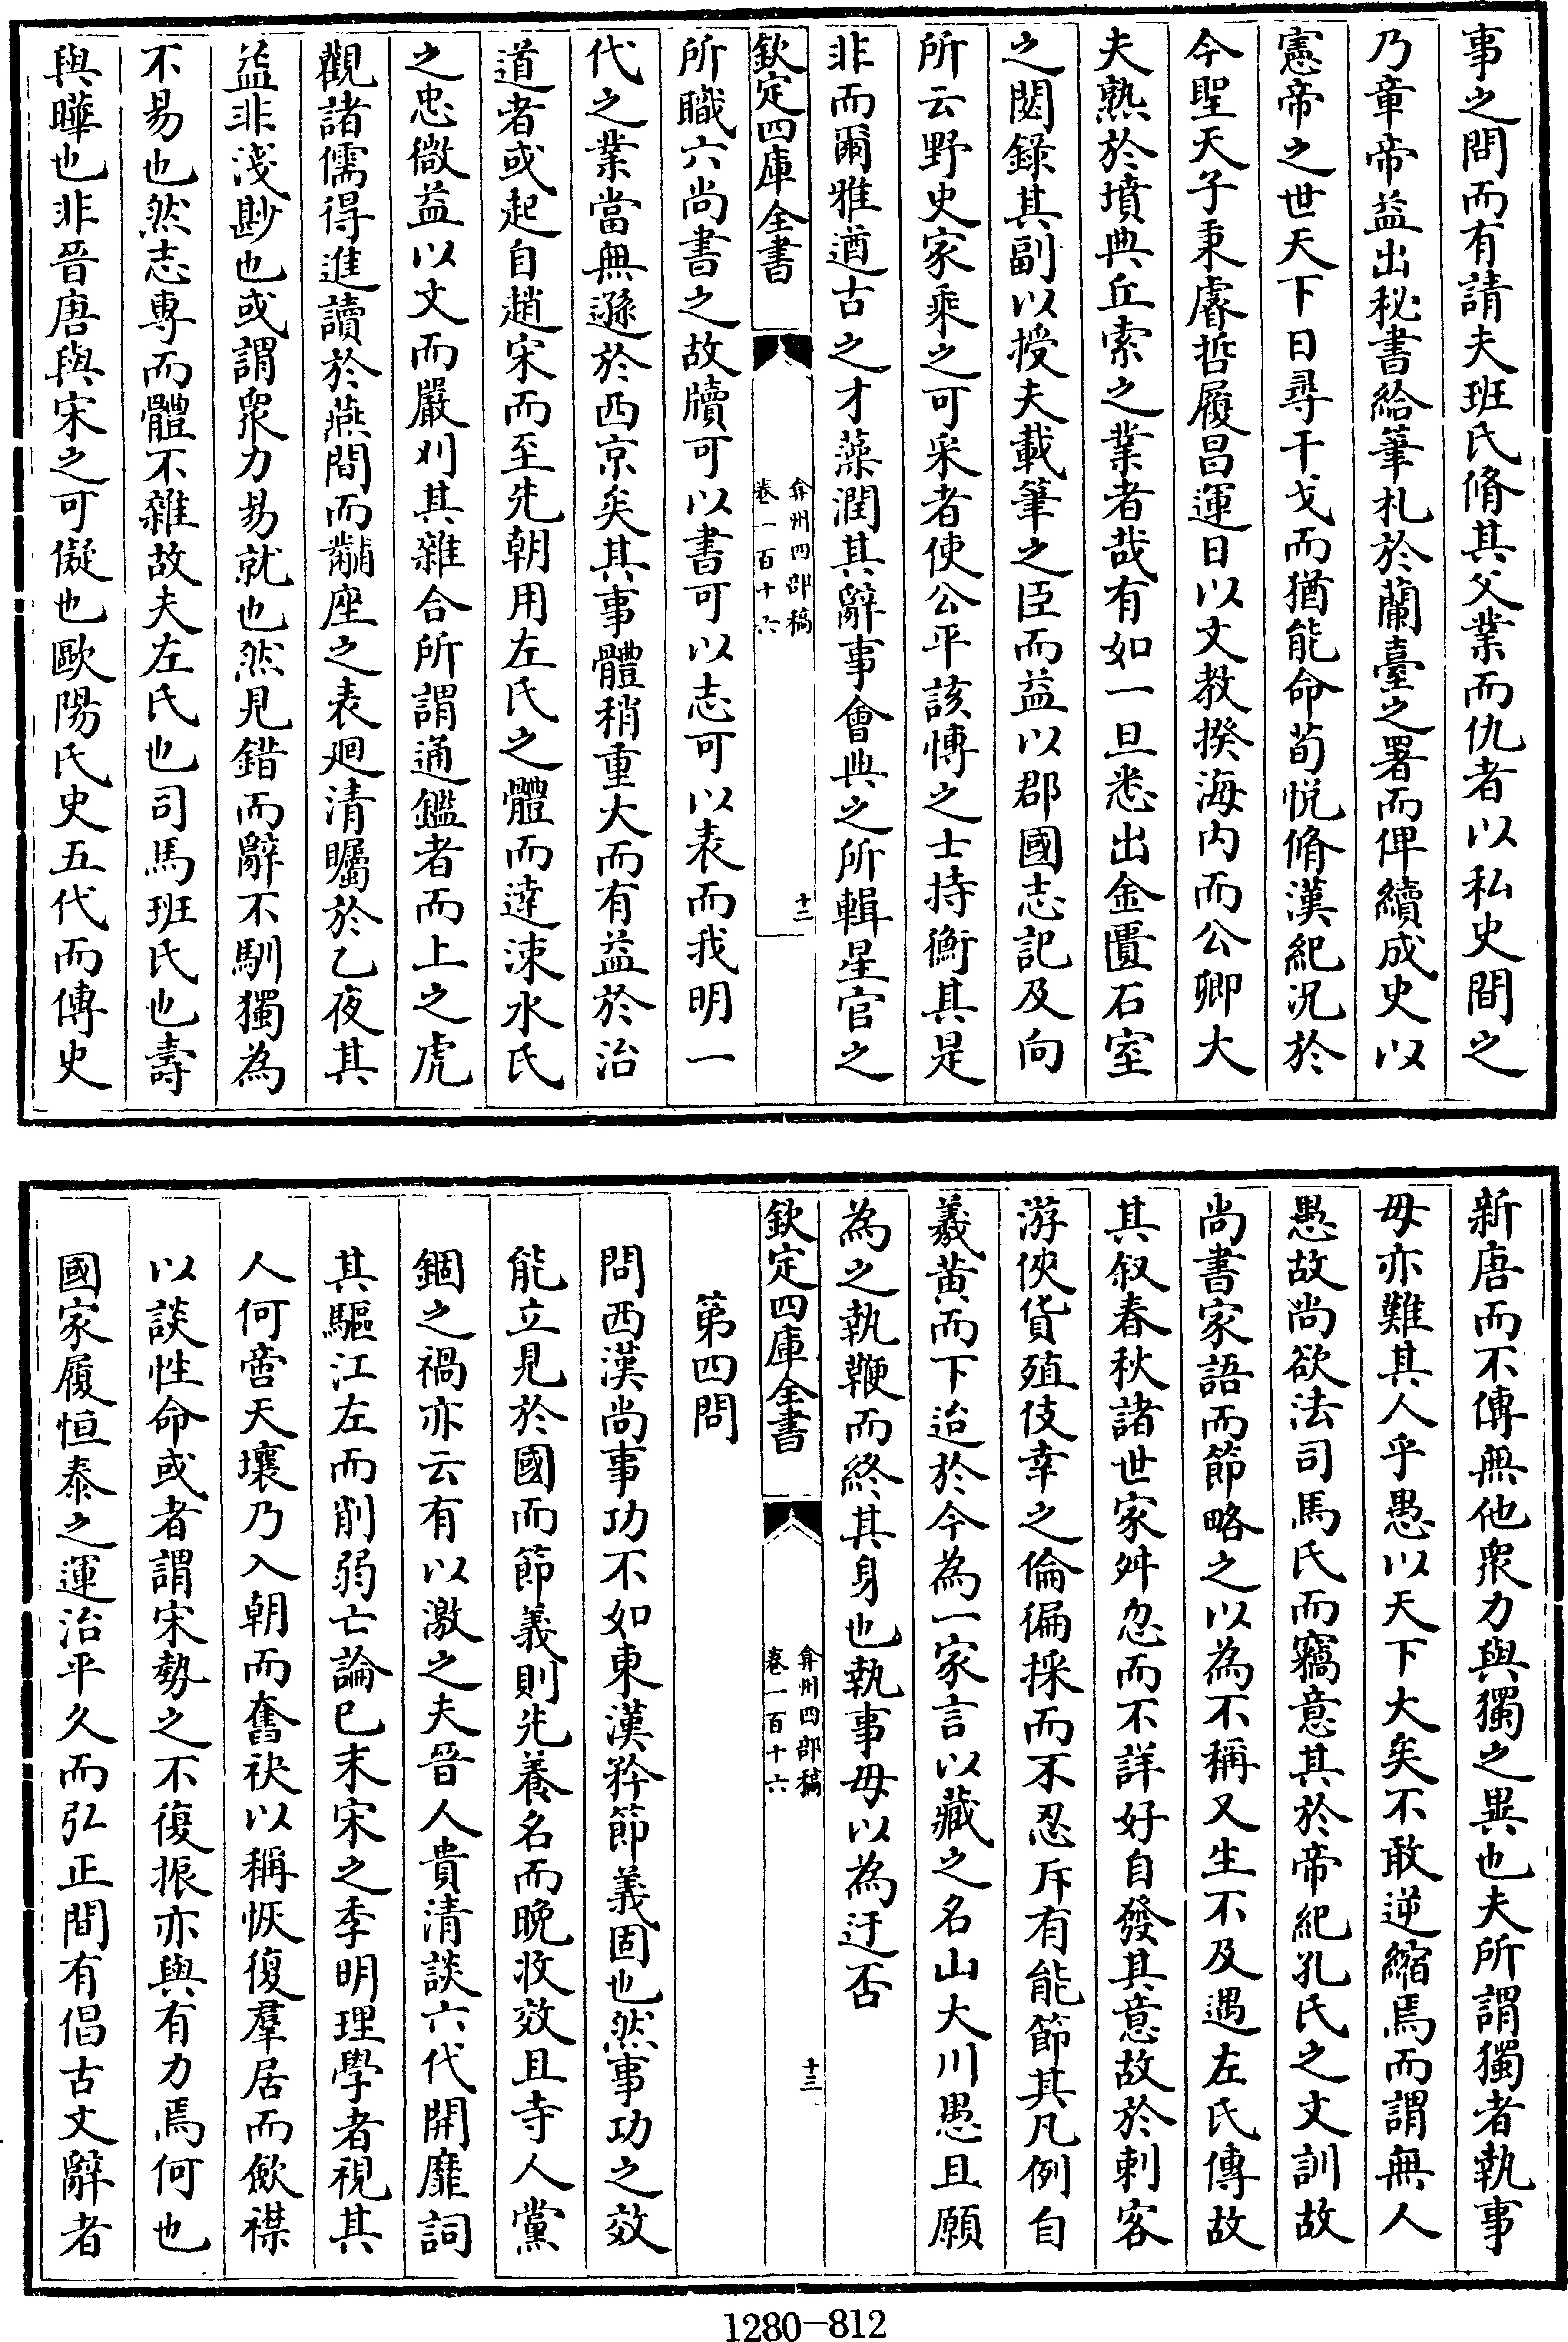 事之間而有請夫班氏脩其父業而仇者以私史間之
乃章帝益出秘書給筆札於蘭臺之署而俾續成史以
憲帝之世天下日尋干戈而猶能命荀悅脩漢紀况於
今聖天子秉睿哲履昌運日以文教揆海内而公卿大
夫熟於墳典丘索之業者哉有如一旦悉出金匱石室
之閟錄其副以授夫載筆之臣而益以郡國志記及向
所云野史家乘之可采者使公平該博之士持衡其是
非而爾雅遒古之才藻潤其辭事會典之所輯星官之
欽定四庫全書
弇州四部稿
卷一百十六
十三
所職六尚書之故牘可以書可以志可以表而我明一
代之業當無遜於西京矣其事體稍重大而有益於治
道者或起自趙宋而至先朝用左氏之體而逹涑水氏
之忠微益以文而嚴刈其雜合所謂通鑑者而上之虎
觀諸儒得進讀於燕間而黼座之表廻清矚於乙夜其
益非淺尠也或謂衆力易就也然見錯而辭不馴獨為
不易也然志專而體不雜故夫左氏也司馬班氏也壽
與曄也非晉唐與宋之可儗也歐陽氏史五代而傳史
新唐而不傳無他衆力與獨之異也夫所謂獨者執事
毋亦難其人乎愚以天下大矣不敢逆縮焉而謂無人
愚故尚欲法司馬氏而竊意其於帝紀孔氏之文訓故
尚書家語而節略之以為不稱又生不及遇左氏傳故
其叙春秋諸世家舛忽而不詳好自發其意故於刺客
游俠貨殖伎幸之倫徧採而不忍斥有能節其凡例自
羲黄而下迨於今為一家言以藏之名山大川愚且願
為之執鞭而終其身也執事毋以為迂否
欽定四庫全書
弇州四部稿
卷一百十六
十三
第四問
問西漢尚事功不如東漢矜節義固也然事功之效
能立見於國而節義則先養名而晚收效且寺人黨
錮之禍亦云有以激之夫晉人貴清談六代開靡詞
其驅江左而削弱亡論已末宋之季明理學者視其
人何啻天壤乃入朝而奮袂以稱恢復羣居而斂襟
以談性命或者謂宋勢之不復振亦與有力焉何也
國家履恒泰之運治平久而弘正間有倡古文辭者
1280-812